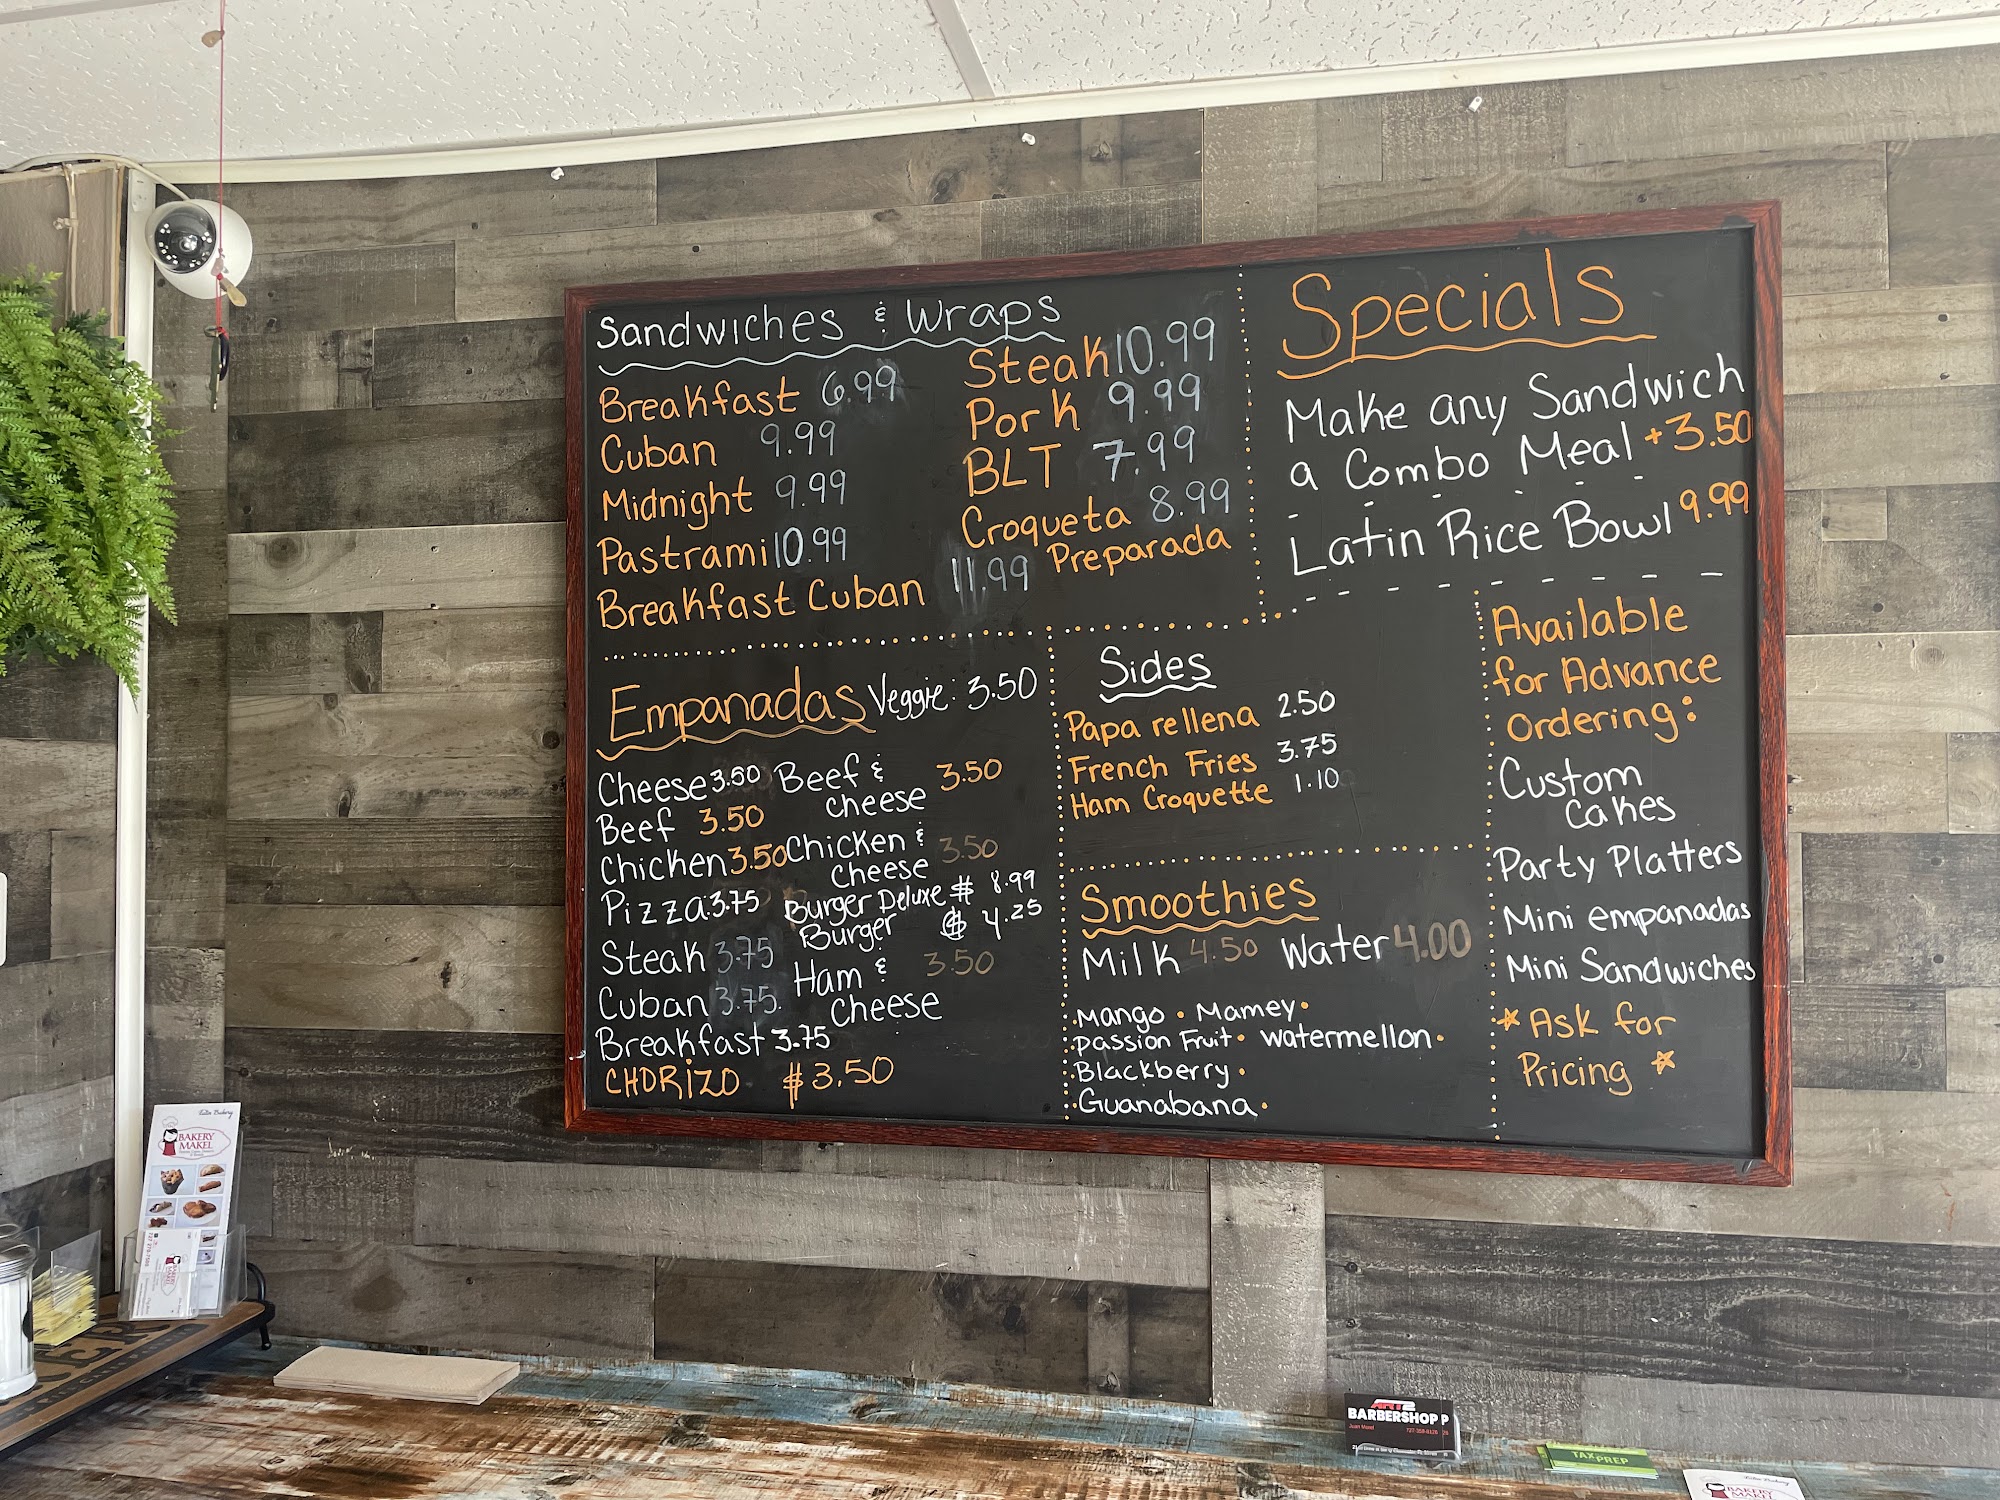 Sandwiches & Wraps
Breakfast 6.99
Cuban 9.99
Midnight 9.99
Pastrami 10.99
Breakfast Cuban 11.99
Steak 10.99
Pork 9.99
BLT 7.99
Croqueta 8.99
Preparada
Specials
Make any Sandwich
a Combo Meal +3.50
Latin Rice Bowl 9.99
Empanadas Veggie: 3.50
Cheese 3.50
Beef 3.50
Chicken 3.50
Pizza 3.75
Steak 3.75
Cuban 3.75
Breakfast 3.75
CHORIZO $3.50
Beef & 3.50
cheese
Chicken & 3.50
cheese
Burger Deluxe $ 8.99
Burger $ 4.25
Ham & 3.50
Cheese
Sides
Papa rellena 2.50
French Fries 3.75
Ham Croquette 1.10
Smoothies
Milk 4.50 Water 4.00
Mango • Mamey •
Passion Fruit • Watermellon •
Blackberry •
Guanabana •
Available
for Advance
Ordering:
Custom
Cakes
Party Platters
Mini empanadas
Mini Sandwiches
* Ask for
Pricing *
Latin Bakery
BAKERY
MAKEL
BARBERSHOP P
TAX PREP
BAKERY
MAKEL